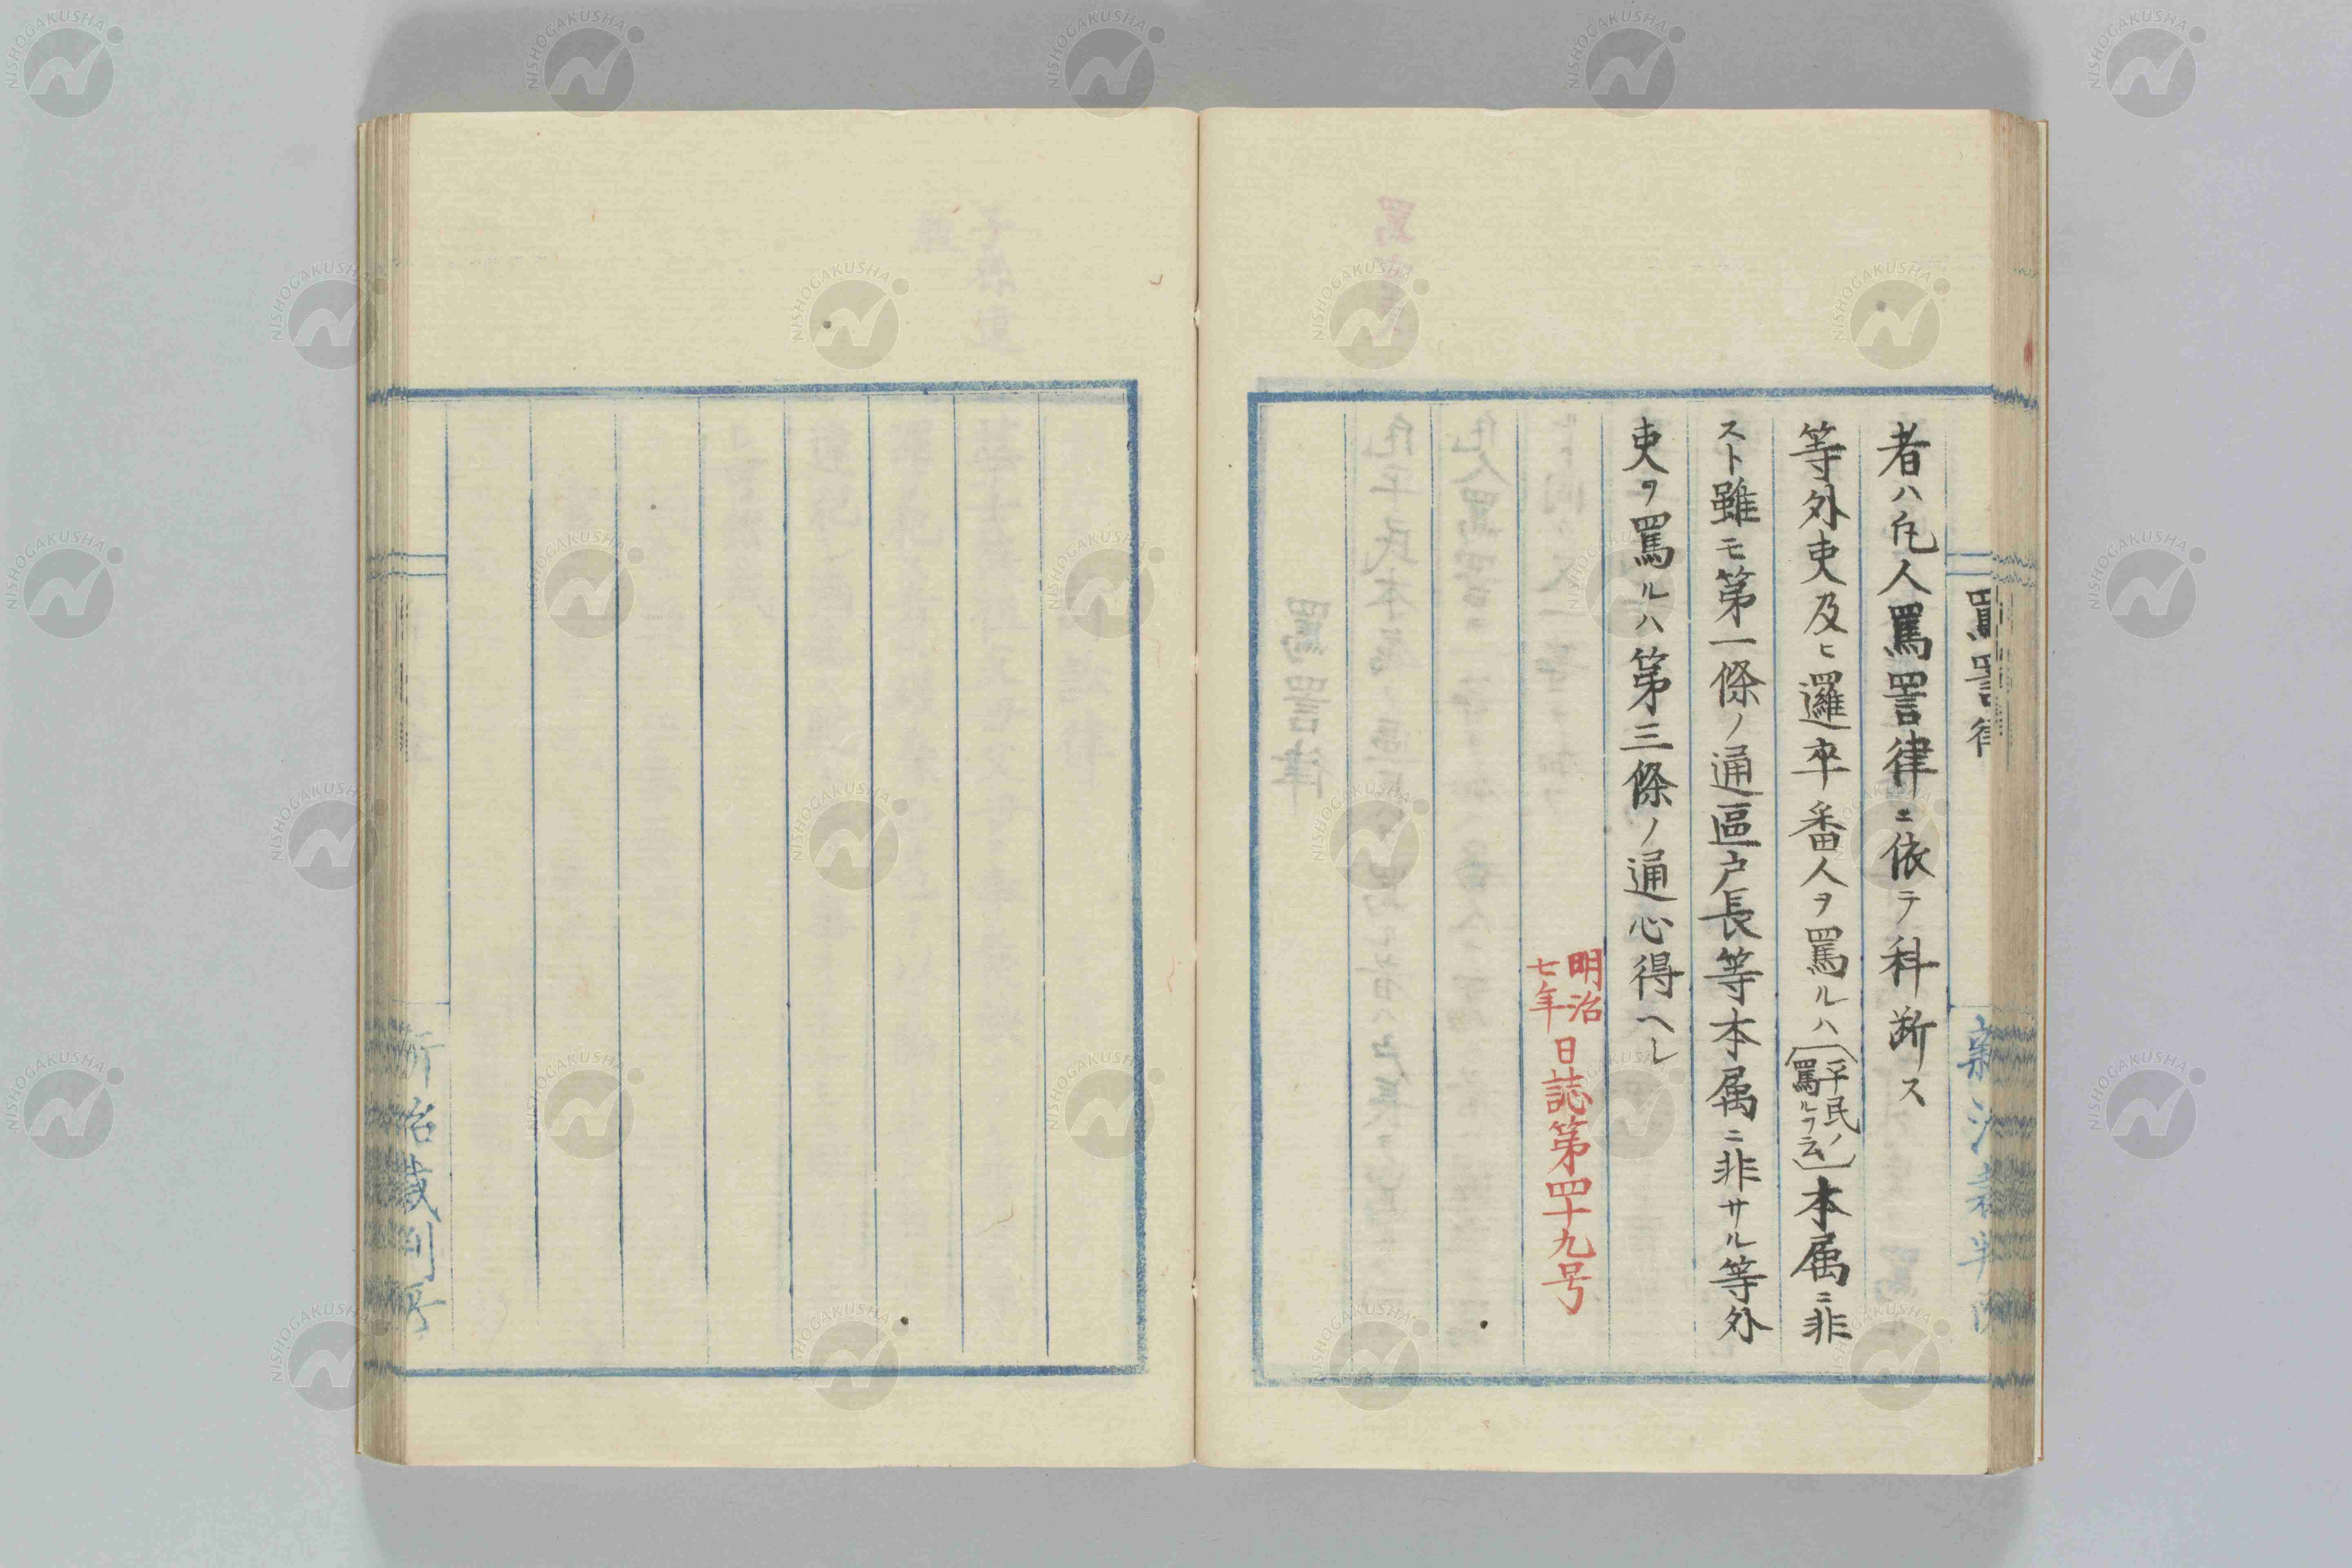 罵詈律
者ハ凡人罵詈律ニ依テ科断ス
等外吏及ヒ邏卒番人ヲ罵ルハ(平民ノ罵ルヲ云)本属ニ非
スト雖モ第一條ノ通區戸長等本属ニ非サル等外
吏ヲ罵ルハ第三條ノ通心得ヘシ
明治七年 日誌第四十九号
新治裁判所
新治裁判所
NISHOGAKUSHA